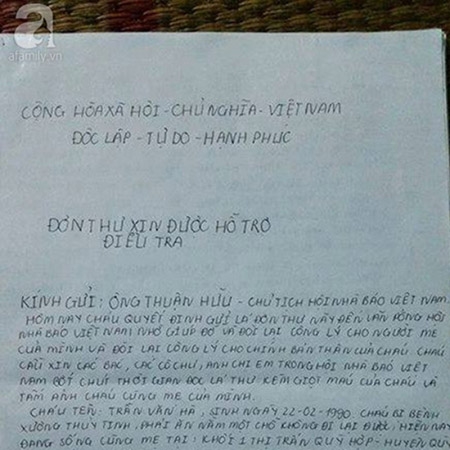 a
afamily.vn
CỘNG HÒA XÃ HỘI - CHỦ NGHĨA - VIỆT NAM
ĐỘC LẬP - TỰ DO - HẠNH PHÚC
ĐƠN THƯ XIN ĐƯỢC HỖ TRỢ
ĐIỀU TRA
KÍNH GỬI: ÔNG THUẬN HỮU - CHỦ TỊCH HỘI NHÀ BÁO VIỆT NAM.
HÔM NAY CHÁU QUYẾT ĐỊNH GỬI LÁ ĐƠN THƯ NÀY ĐẾN VĂN PHÒNG HỘI
NHÀ BÁO VIỆT NAM NHỜ GIÚP ĐỠ VÀ ĐÒI LẠI CÔNG LÝ CHO NGƯỜI MẸ
CỦA MÌNH VÀ ĐÒI LẠI CÔNG LÝ CHO CHÍNH BẢN THÂN CỦA CHÁU. CHÁU
CẦU XIN CÁC BÁC, CÁC CÔ CHÚ, ANH CHỊ EM TRONG HỘI NHÀ BÁO VIỆT
NAM BỚT CHÚT THỜI GIAN ĐỌC LÁ THƯ KÈM GIỌT MÁU CỦA CHÁU VÀ
TẤM ẢNH CHÁU CÙNG MẸ CỦA MÌNH.
CHÁU TÊN: TRẦN VĂN HÀ, SINH NGÀY 22-02-1990. CHÁU BỊ BỆNH
XƯƠNG THỦY TINH, PHẢI ĂN NẰM MỘT CHỖ KHÔNG ĐI LẠI ĐƯỢC, HIỆN NAY
ĐANG SỐNG CÙNG MẸ TẠI: KHỐI 1 THỊ TRẤN QUỲ HỢP - HUYỆN QUỲ